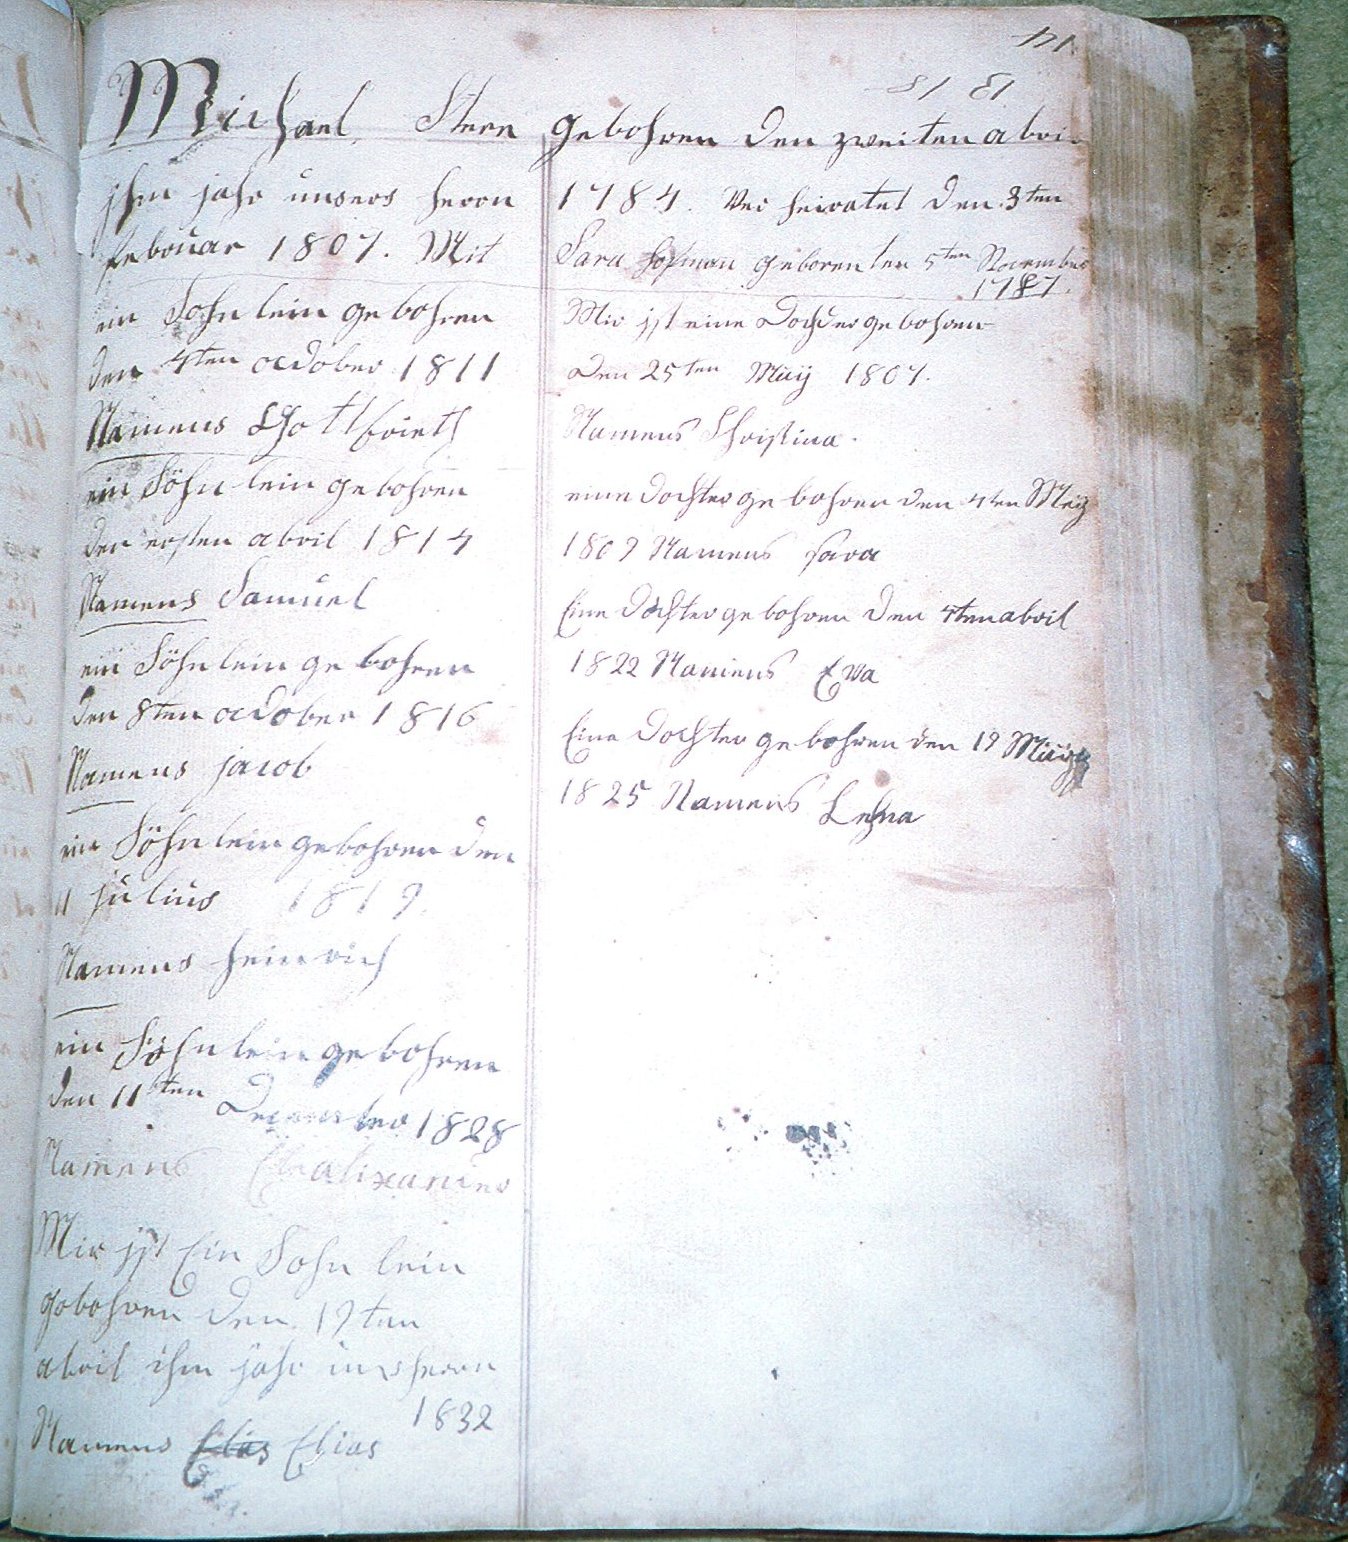 171
81 81
Michael Stern gebohren den zweiten abri
jhm jahr unsers herrn 1784. Ver heiratet den 3ten
februar 1807. Mit Sara geboren ten 5ten November
1787.
ein Sohn lein gebohren
den 4ten october 1811
Namens Ghottfrieth
ein Söhn lein gebohren
den ersten abril 1814
Namens Samuel
ein Söhn lein gebohren
den 8ten october 1816
Namens jacob
ein Söhn lein gebohren den
11 julius 1819.
Namens heinrich
ein Söhn lein gebohren
den 11ten December 1828
Namens
Mir jst Ein Sohn lein
gebohren den 19ten
abril ihm jahr uns herrn
1832
Namens Elias Elias
Mir jst eine Dochder gebohren
den 25ten Maÿ 1807.
Namens Christina.
eine dochter gebohren den 4ten Merz
1809 Namens sara
Eine dochter gebohren den 4ten abril
1822 Namens Eva
Eine dochter gebohren den 19
1825 Namens Lehna